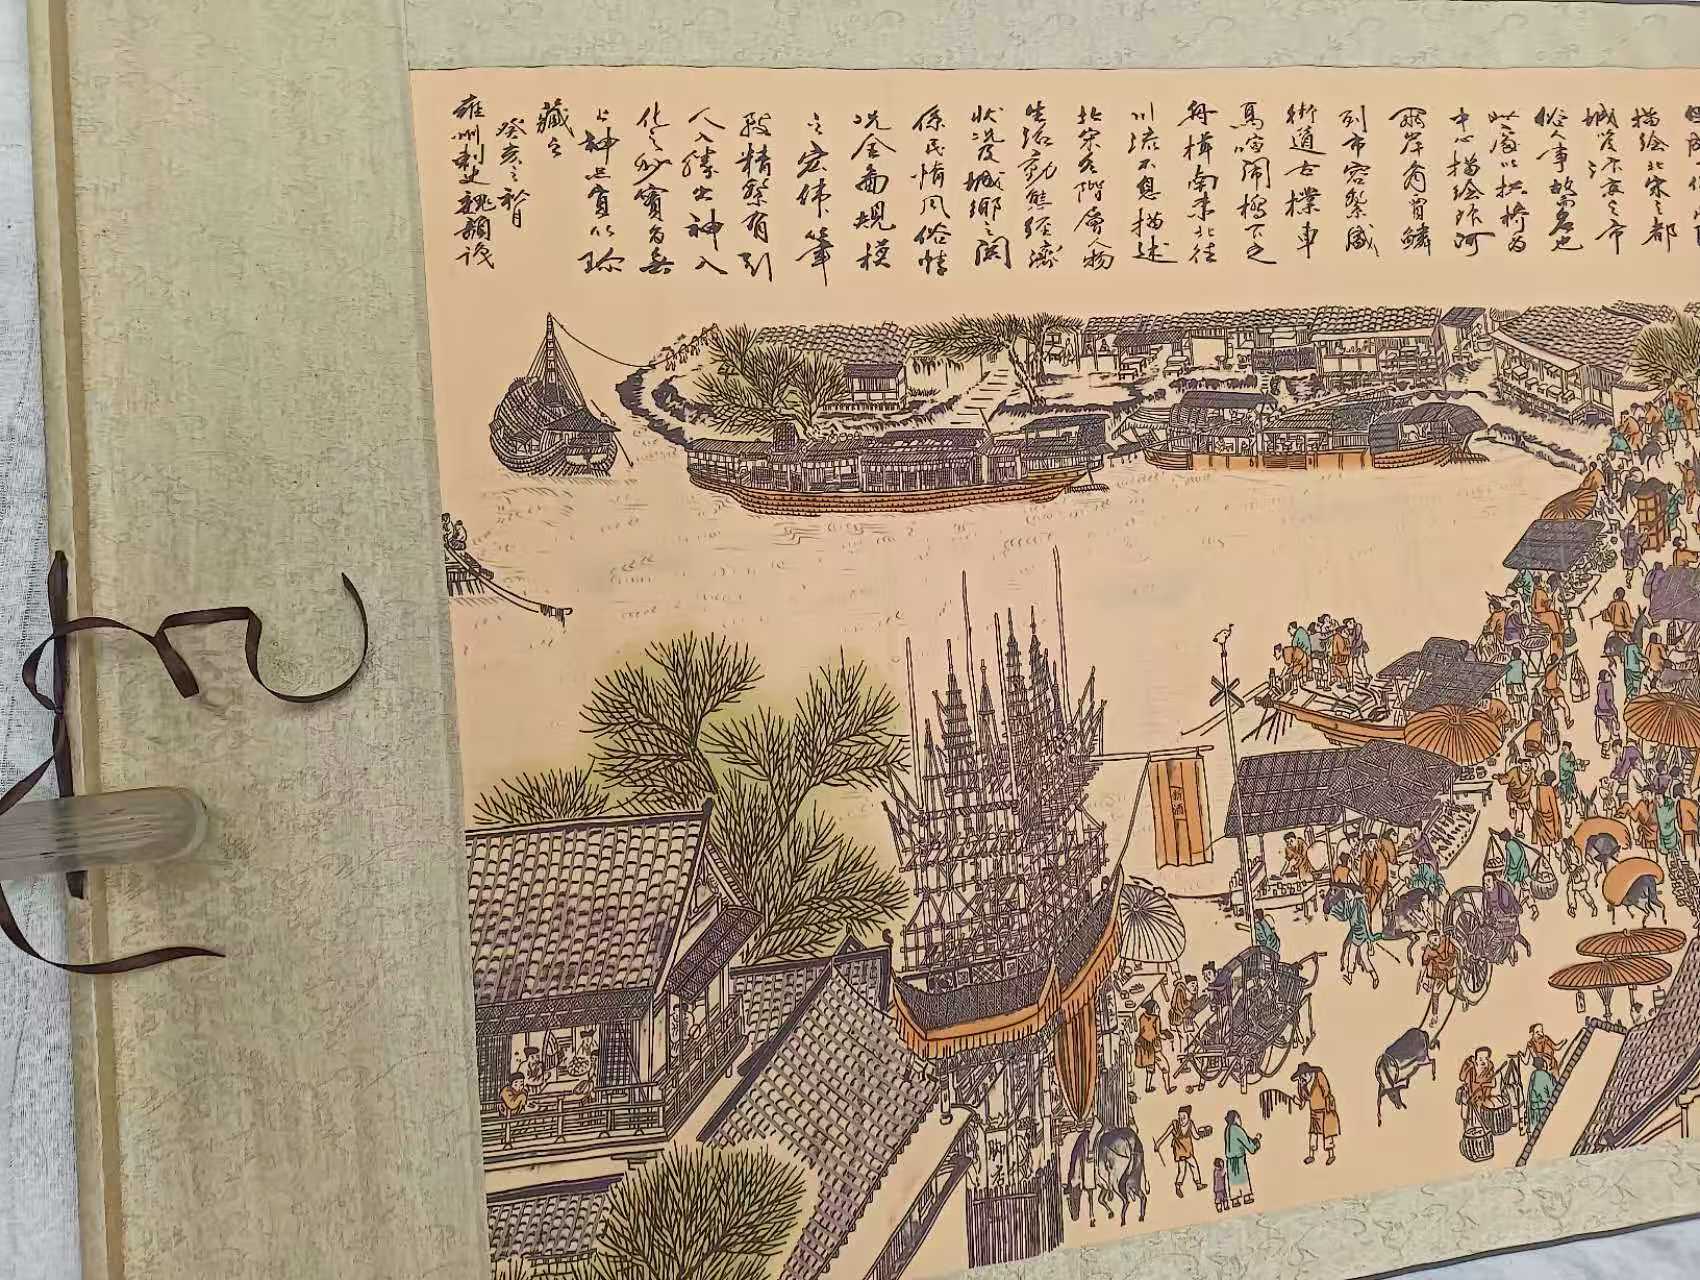 描绘北宋之都
城汴京之市
俗人事故名也
此段以拱桥为
中心描绘汴河
两岸商贾鳞
列市容繁盛
街道古樸车
马喧闹桥下之
舟楫南来北往
川流不息描述
北宋各階層人物
生活動態经濟
状况及城鄉之関
係民情风俗情
况全面规模
之宏伟筆
致精繁有引
人入勝出神入
化之妙實為無
上神品宜以珍
藏之
癸亥之初月
雍州刺史魏韻识
新酒
脚店